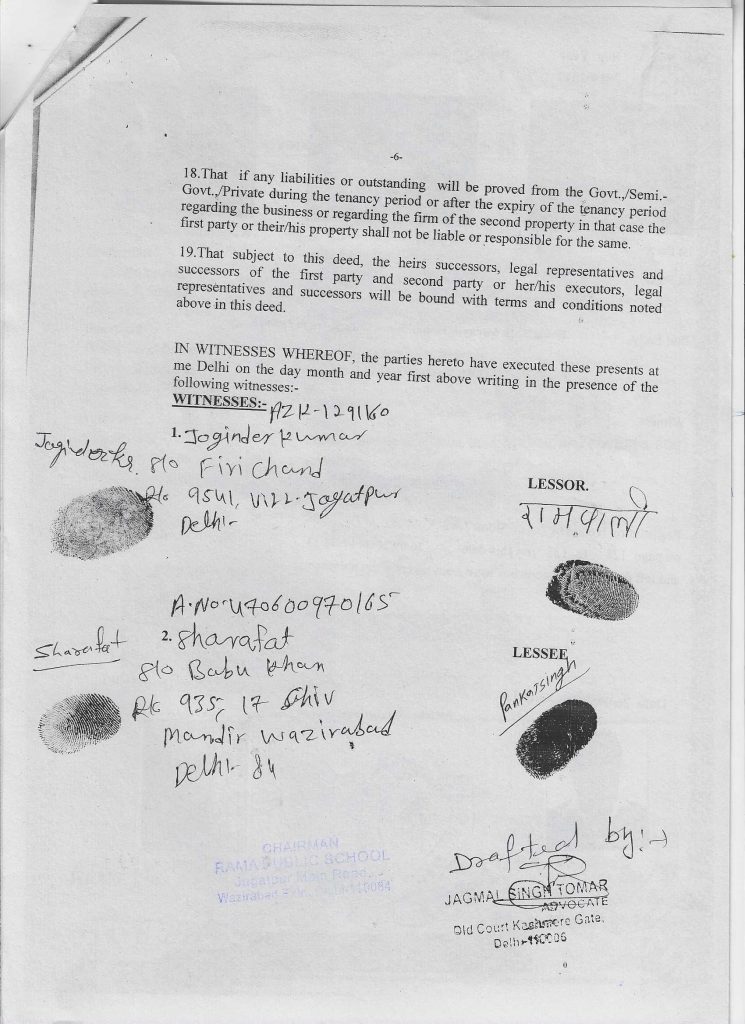 -6-
18.That if any liabilities or outstanding will be proved from the Govt.,/Semi.-
Govt.,/Private during the tenancy period or after the expiry of the tenancy period
regarding the business or regarding the firm of the second property in that case the
first party or their/his property shall not be liable or responsible for the same.
19.That subject to this deed, the heirs successors, legal representatives and
successors of the first party and second party or her/his executors, legal
representatives and successors will be bound with terms and conditions noted
above in this deed.
IN WITNESSES WHEREOF, the parties hereto have executed these presents at
me Delhi on the day month and year first above writing in the presence of the
following witnesses:-
WITNESSES:-
1. Joginder Kumar
S/o Firi Chand
R/o 9541, Vill-Jagatpur
Delhi-
LESSOR.
रामपाली
A.No. U70600970165
Sharafat
2. Sharafat
S/o Babu Khan
R/o 935, 17 Shiv
Mandir Wazirabad
Delhi- 84
LESSEE
Pankajsingh
CHAIRMAN
RAMA PUBLIC SCHOOL
Jagatpur Main Road,
Wazirabad
Drafted by:-
JAGMAL SINGH TOMAR
ADVOCATE
Old Court Kashmere Gate,
Delhi-110006